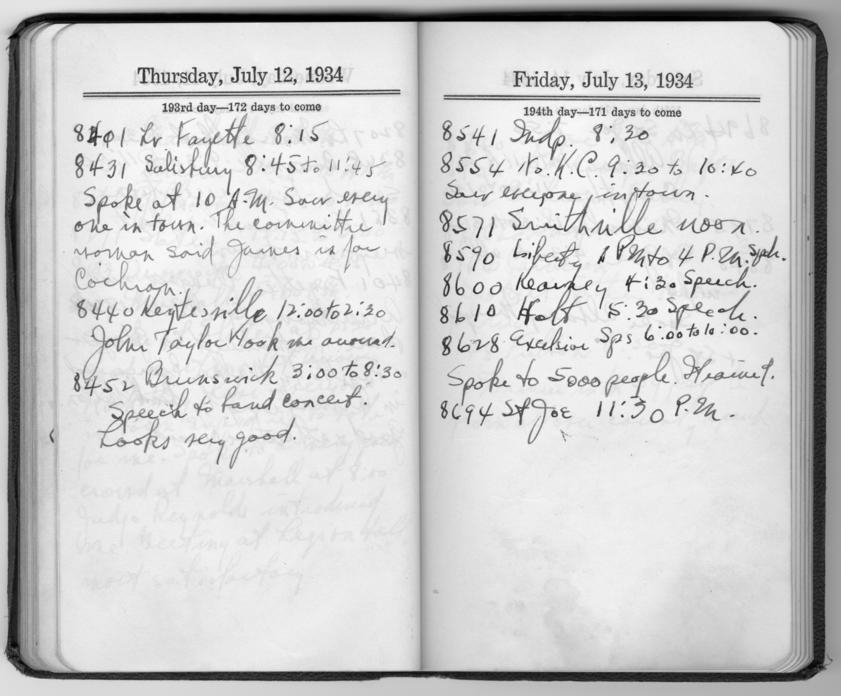 Thursday, July 12, 1934
193rd day—172 days to come
8401 Lv Fayette 8:15
8431 Salisbury 8:45 to 11:45
Spoke at 10 A.M. Saw every
one in town. The committee
woman said James is for
Cochran.
8440 Keytesville 12:00 to 2:30
John Taylor took me around.
8452 Brunswick 3:00 to 8:30
Speech to band concert.
Looks very good.
crowd at Marshall at 8:00
Judge Reynolds introduced
me. Meeting at Legion Hall
most satisfactory
Friday, July 13, 1934
194th day—171 days to come
8541 Indp. 8:30
8554 No. K.C. 9:30 to 10:40
Saw everyone in town.
8571 Smithville noon.
8590 Liberty 1 PM to 4 P.M. Spch.
8600 Kearney 4:30 Speech.
8610 Holt 5:30 Speech.
8628 Excelsior Sps 6:00 to 10:00.
Spoke to 5000 people. It rained.
8694 St Joe 11:30 P.M.